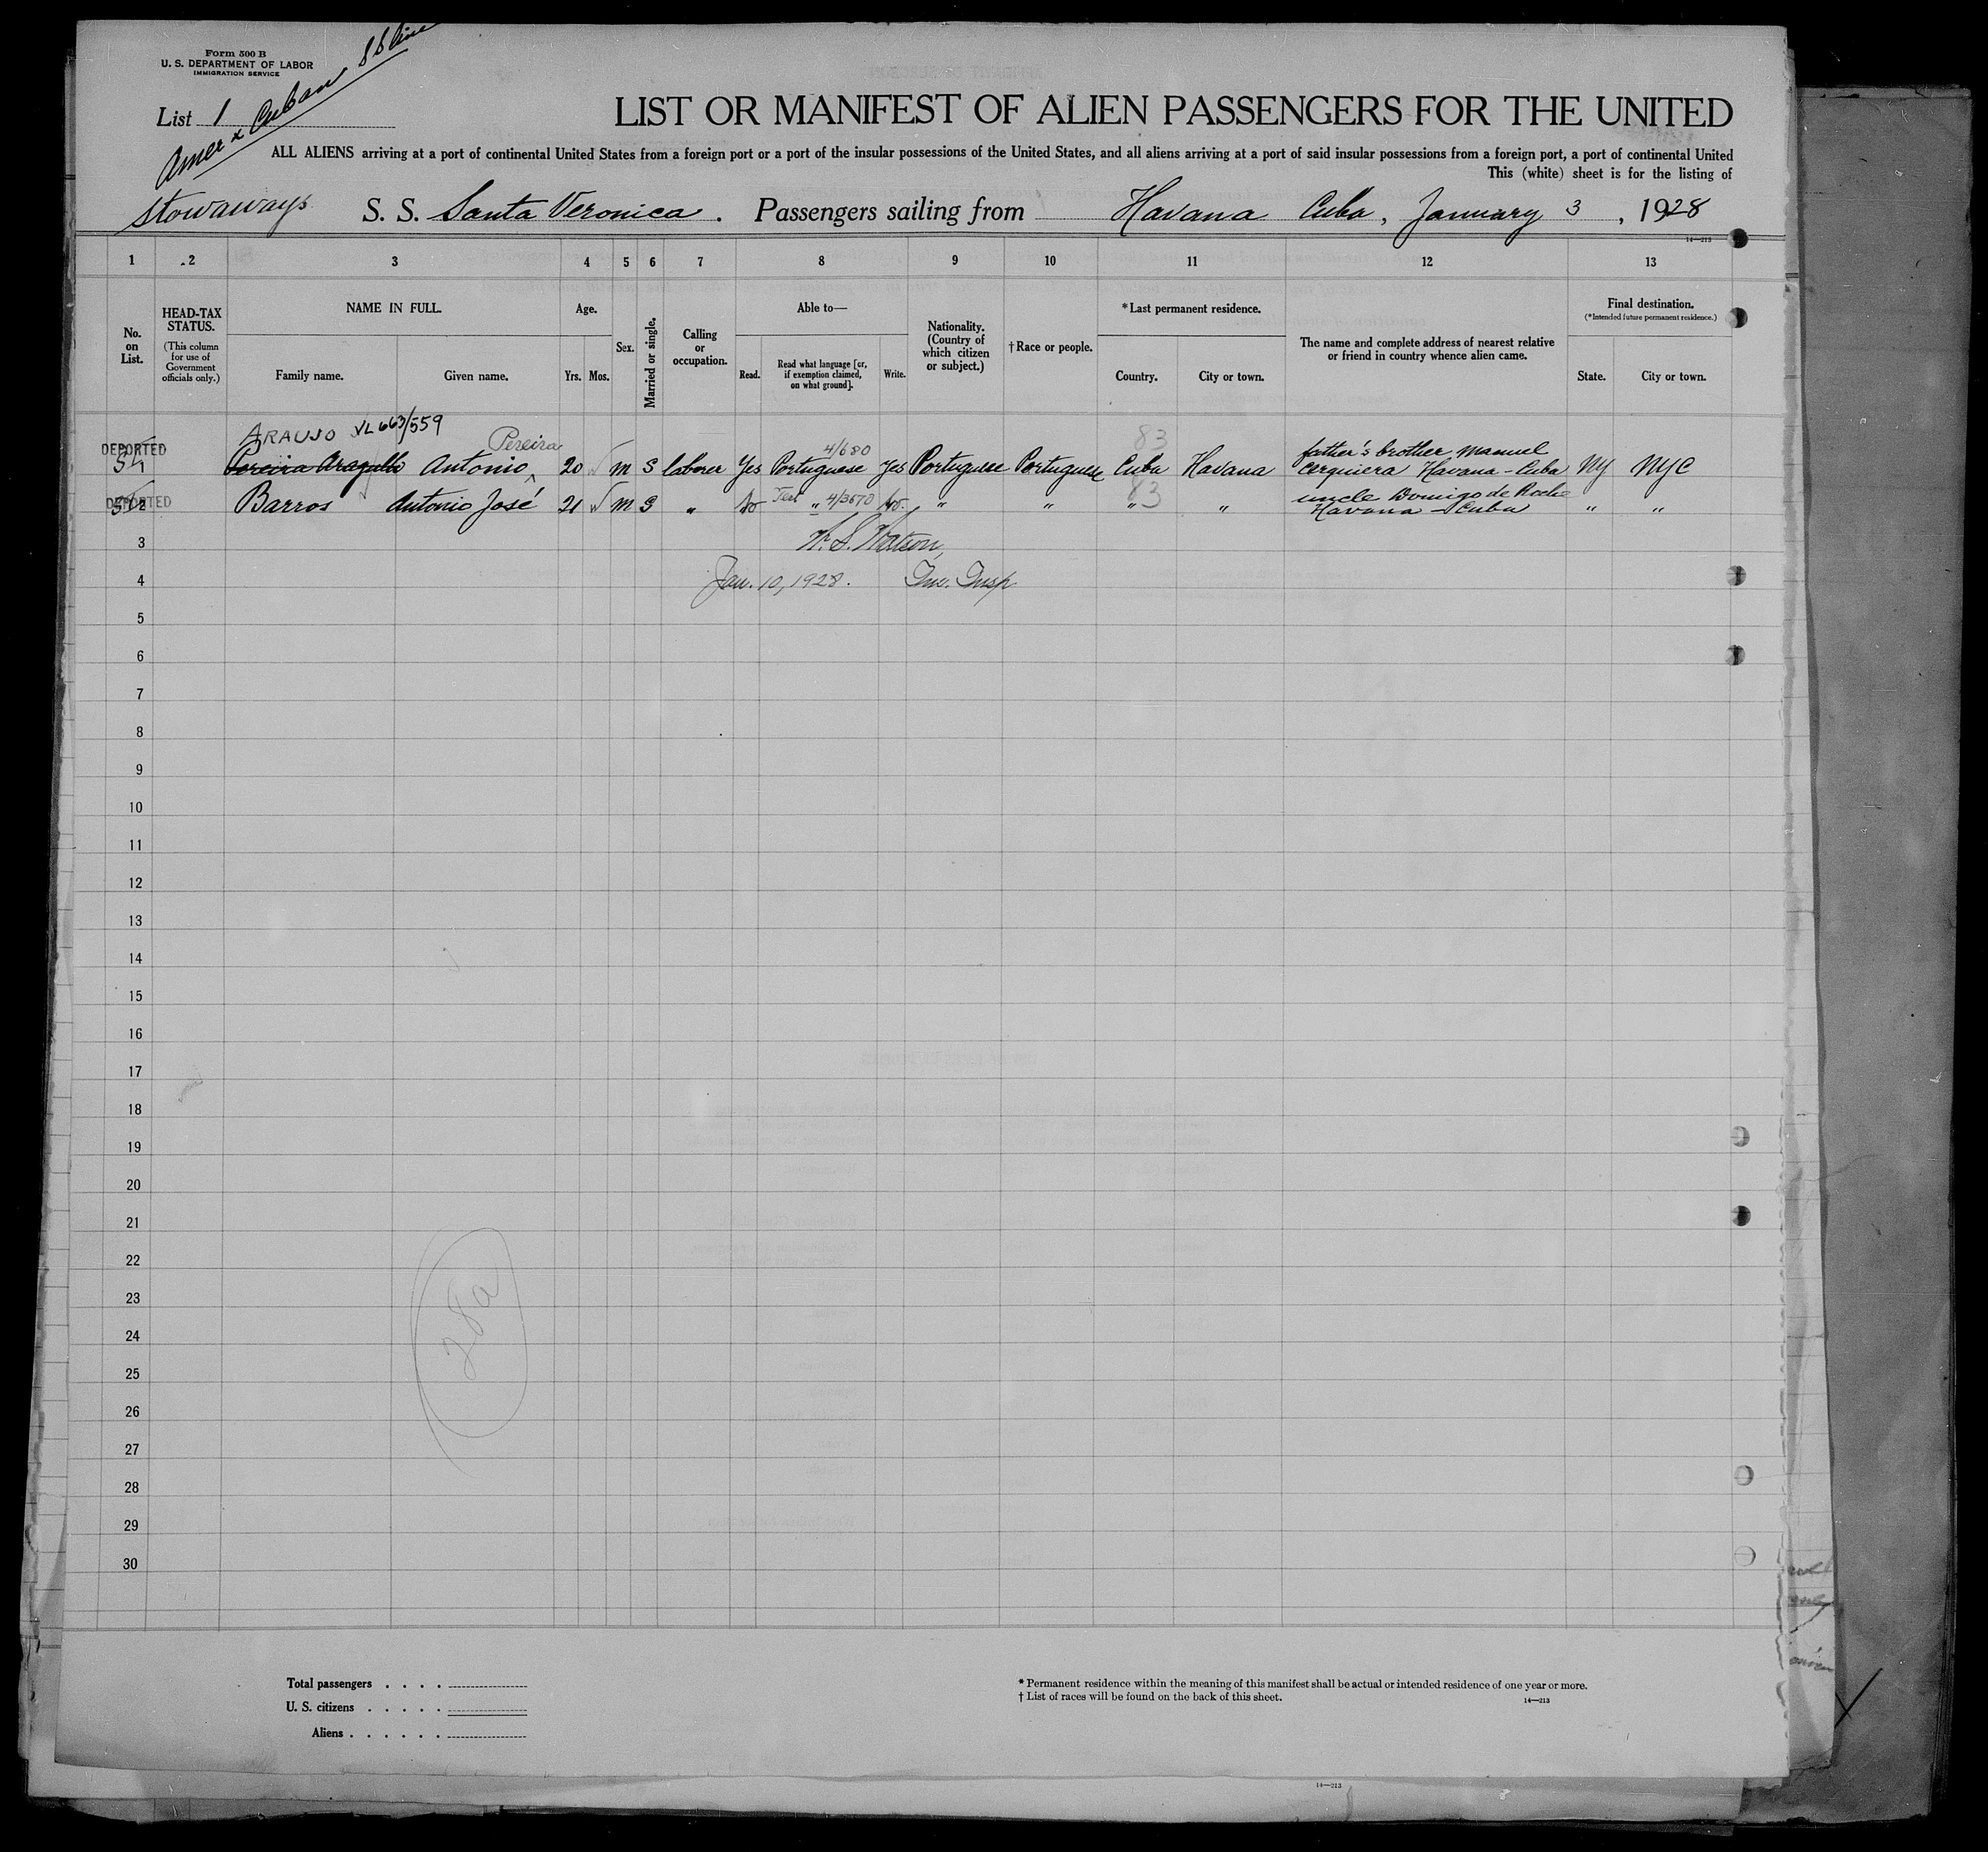 Form 500 B
U. S. DEPARTMENT OF LABOR
IMMIGRATION SERVICE
List 1
Amer & Cuban S S Line
LIST OR MANIFEST OF ALIEN PASSENGERS FOR THE UNITED
ALL ALIENS arriving at a port of continental United States from a foreign port or a port of the insular possessions of the United States, and all aliens arriving at a port of said insular possessions from a foreign port, a port of continental United
This (white) sheet is for the listing of
Stowaways S. S. Santa Veronica. Passengers sailing from Havana Cuba, January 3, 1928
14—213
1 2 3 4 5 6 7 8 9 10 11 12 13
No. on List.
HEAD-TAX STATUS. (This column for use of Government officials only.)
NAME IN FULL. Family name. Given name.
Age. Yrs. Mos.
Sex.
Married or single.
Calling or occupation.
Able to— Read. Read what language [or, if exemption claimed, on what ground]. Write.
Nationality. (Country of which citizen or subject.)
† Race or people.
* Last permanent residence. Country. City or town.
The name and complete address of nearest relative or friend in country whence alien came.
Final destination. (*Intended future permanent residence.) State. City or town.
ARAUJO VL 663/559 Pereira 4/680 83
DEPORTED Pereira Antonio 20 m S laborer Yes Portuguese Yes Portuguese Portuguese Cuba Havana father's brother Manuel Cerquiera Havana - Cuba NY NYC
DEPORTED 2 Barros Antonio José 21 m S " no " 4/3670 no. " " " 83 " uncle Domigo de Roche Havana - Cuba " "
3 W. S. Watson,
4 Jan. 10, 1928. Ins. Insp
5
6
7
8
9
10
11
12
13
14
15
16
17
18
19
20
21
22
23
24
25
26
27
28
29
30
28a
Total passengers . . . .
U. S. citizens . . . . .
Aliens . . . . . .
* Permanent residence within the meaning of this manifest shall be actual or intended residence of one year or more.
† List of races will be found on the back of this sheet.
14—213
14—213